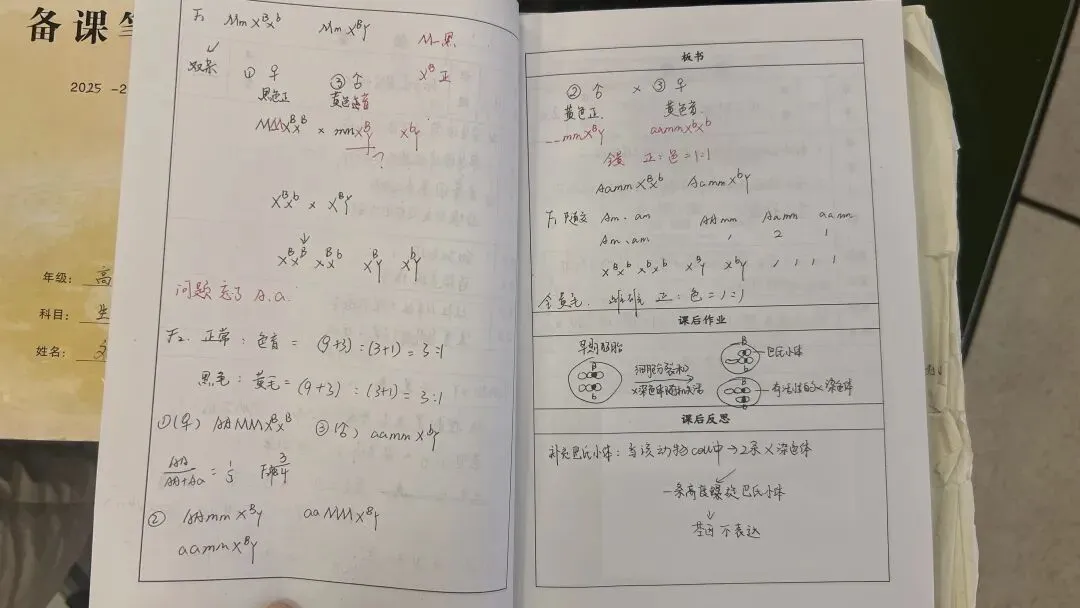 备课笔
2025 -2
年级： 高
科目： 生
姓名：
F₁ MmXᴮXᵇ MmXᴮY M_黑
双杂 Xᴮ_正
① ♀ ③ ♂
黑色正 黄色色盲
MMXᴮXᴮ × mmXᴮY XᵇY
?
XᴮXᵇ × XᴮY
↓
XᴮXᴮ XᴮXᵇ XᴮY XᵇY
问题 忘了 A.a.
F₂. 正常：色盲 = (9+3)：(3+1) = 3:1
黑毛：黄毛 = (9+3)：(3+1) = 3:1
①(♀) AAMMXᴮXᴮ ③(♂) aammXᵇY
AA/AA+Aa = 1/3 3/4
② AAmmXᴮY aaMMXᴮY
aammXᴮY
板书
② ♂ × ③ ♀
黄色正. 黄色盲.
_ _mmXᴮY aammXᵇXᵇ
全黄 正：色=1:1
AammXᴮXᵇ AammXᵇY
F₁随交 Am、am AAmm Aamm aamm
Am、am 1 2 1
XᴮXᵇ XᵇXᵇ XᴮY XᵇY 1 1 1 1
全黄毛. 正：色=1:1
课后作业
早期胚胎
细胞分裂和
X染色体随机失活
B
b
B
b
B
b
巴氏小体
有活性的X染色体
课后反思
补充巴氏小体：当该动物cell中→2条X染色体
一条高度螺旋巴氏小体
↓
基因不表达